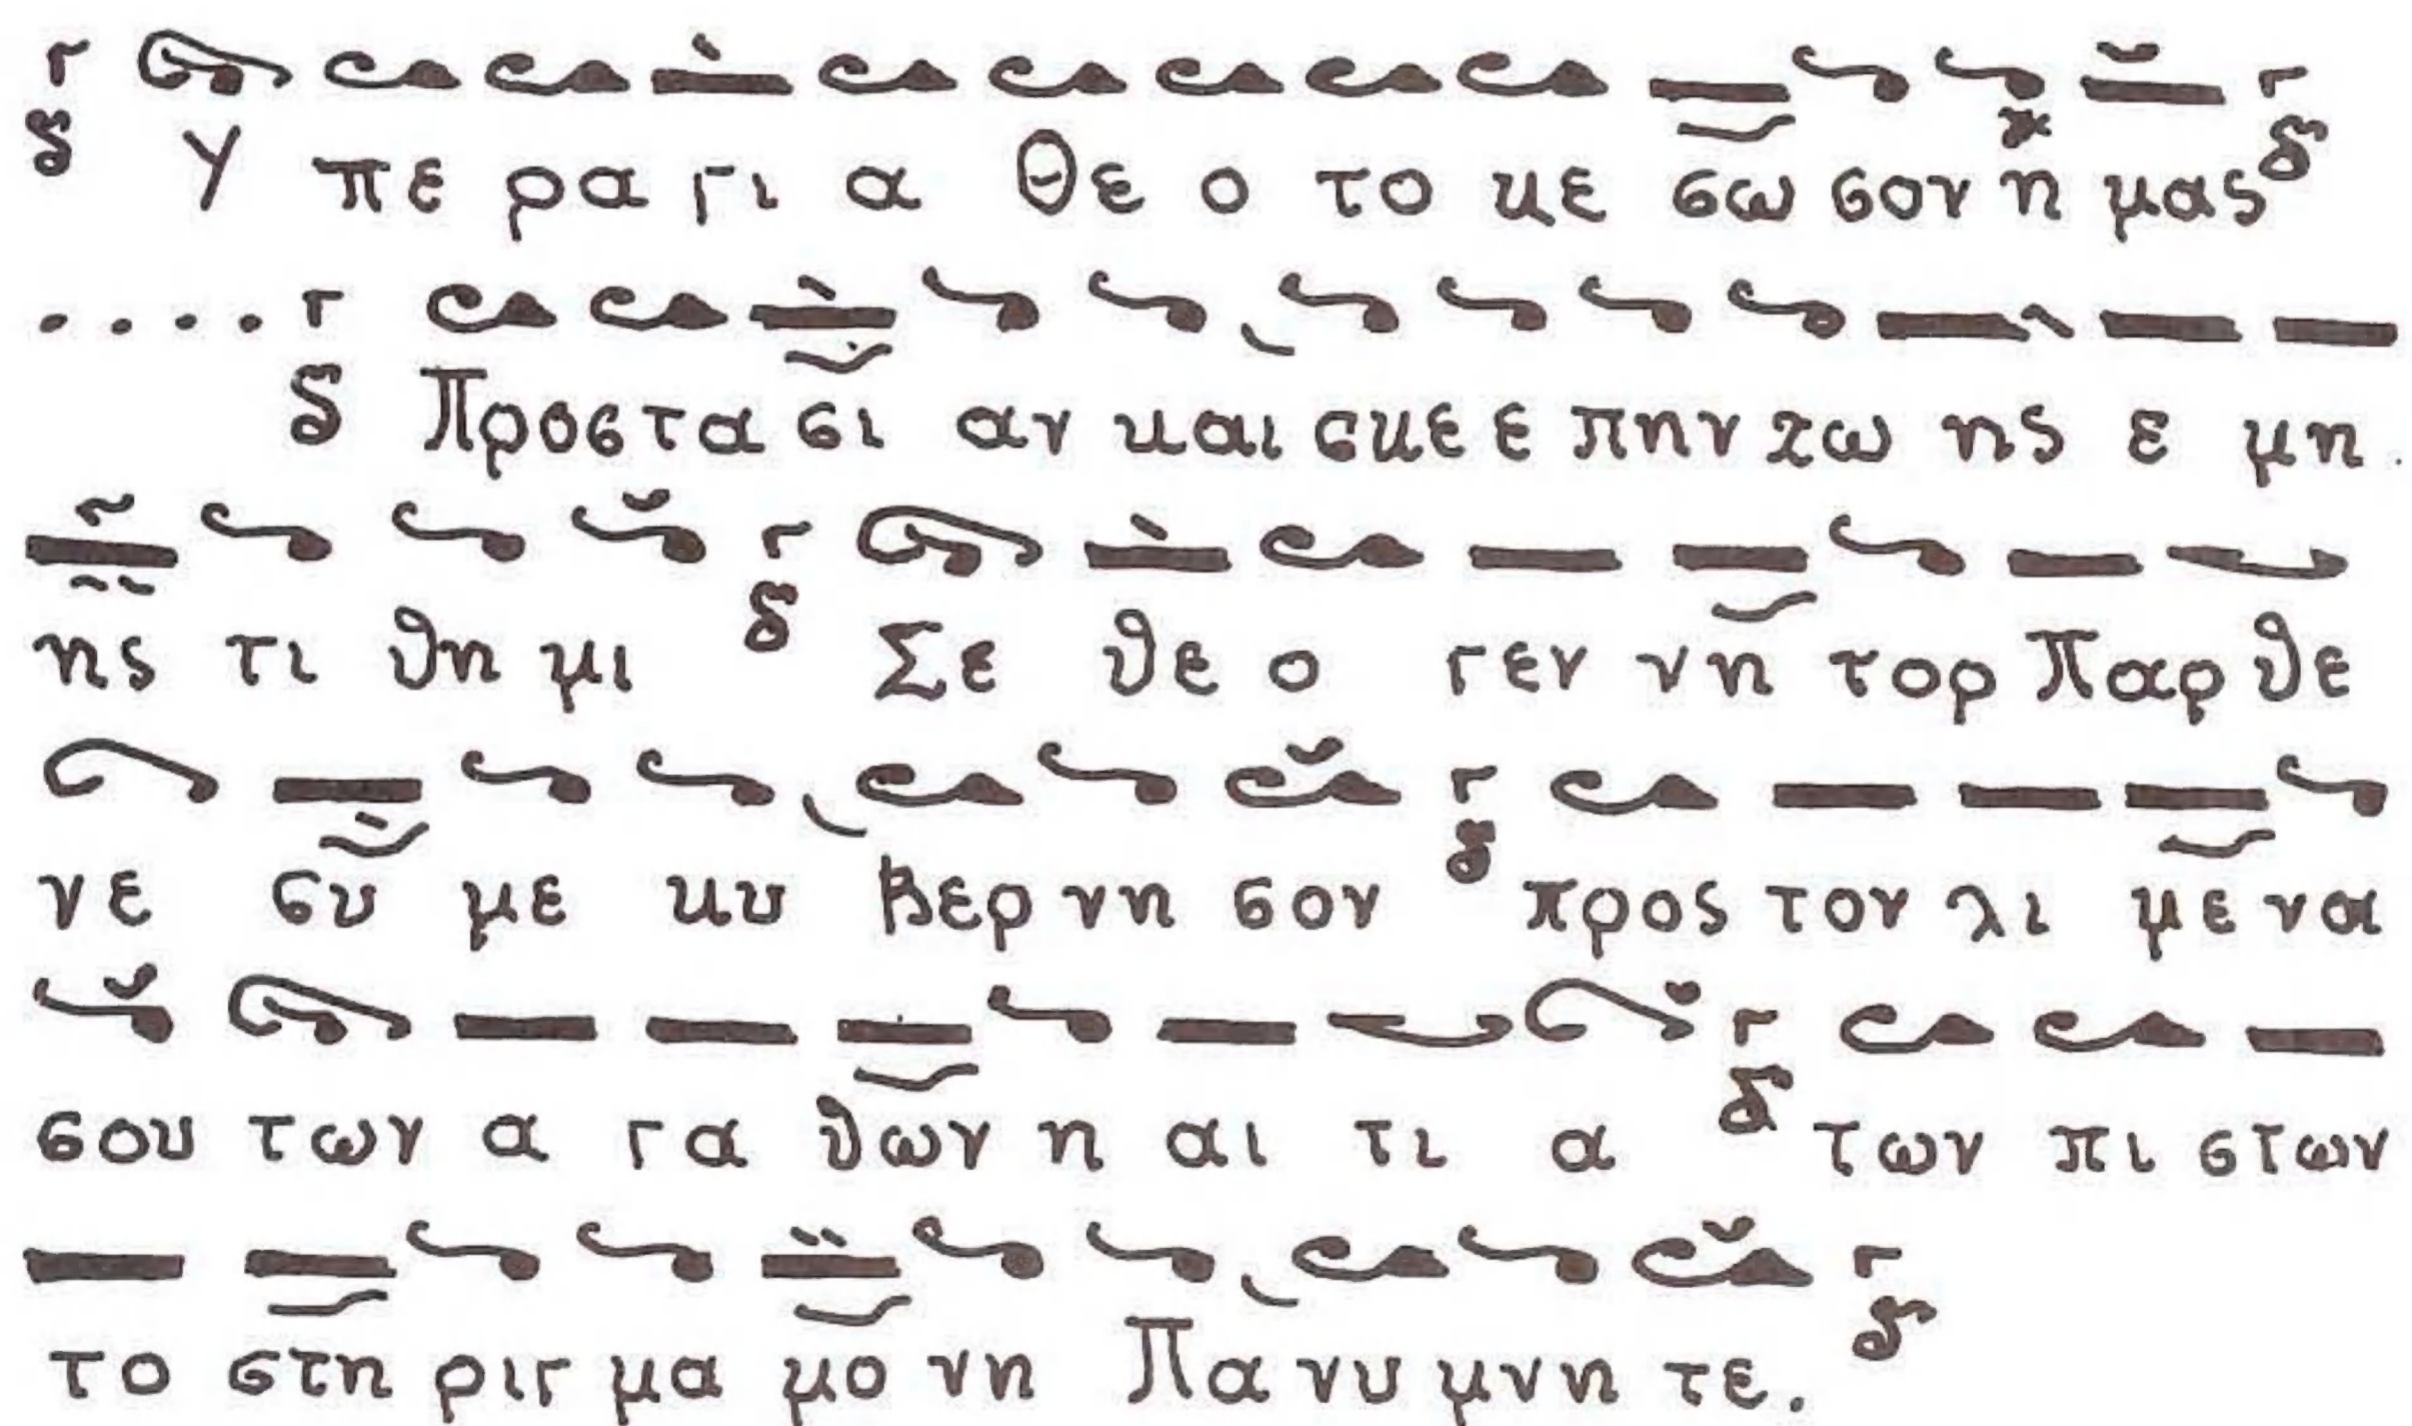 δ Υ πε ρα γι α Θε ο το κε σω σον η μας δ
.... δ Προστα σι αν και σκε ε πην ζω ης ε μη.
ης τι θη μι δ Σε θε ο γεν νη τορ Παρ θε
νε συ με κυ βερ νη σον δ προς τον λι με να
σου των α γα θων η αι τι α δ των πι στων
το στη ριγ μα μο νη Πα νυ μνη τε. δ